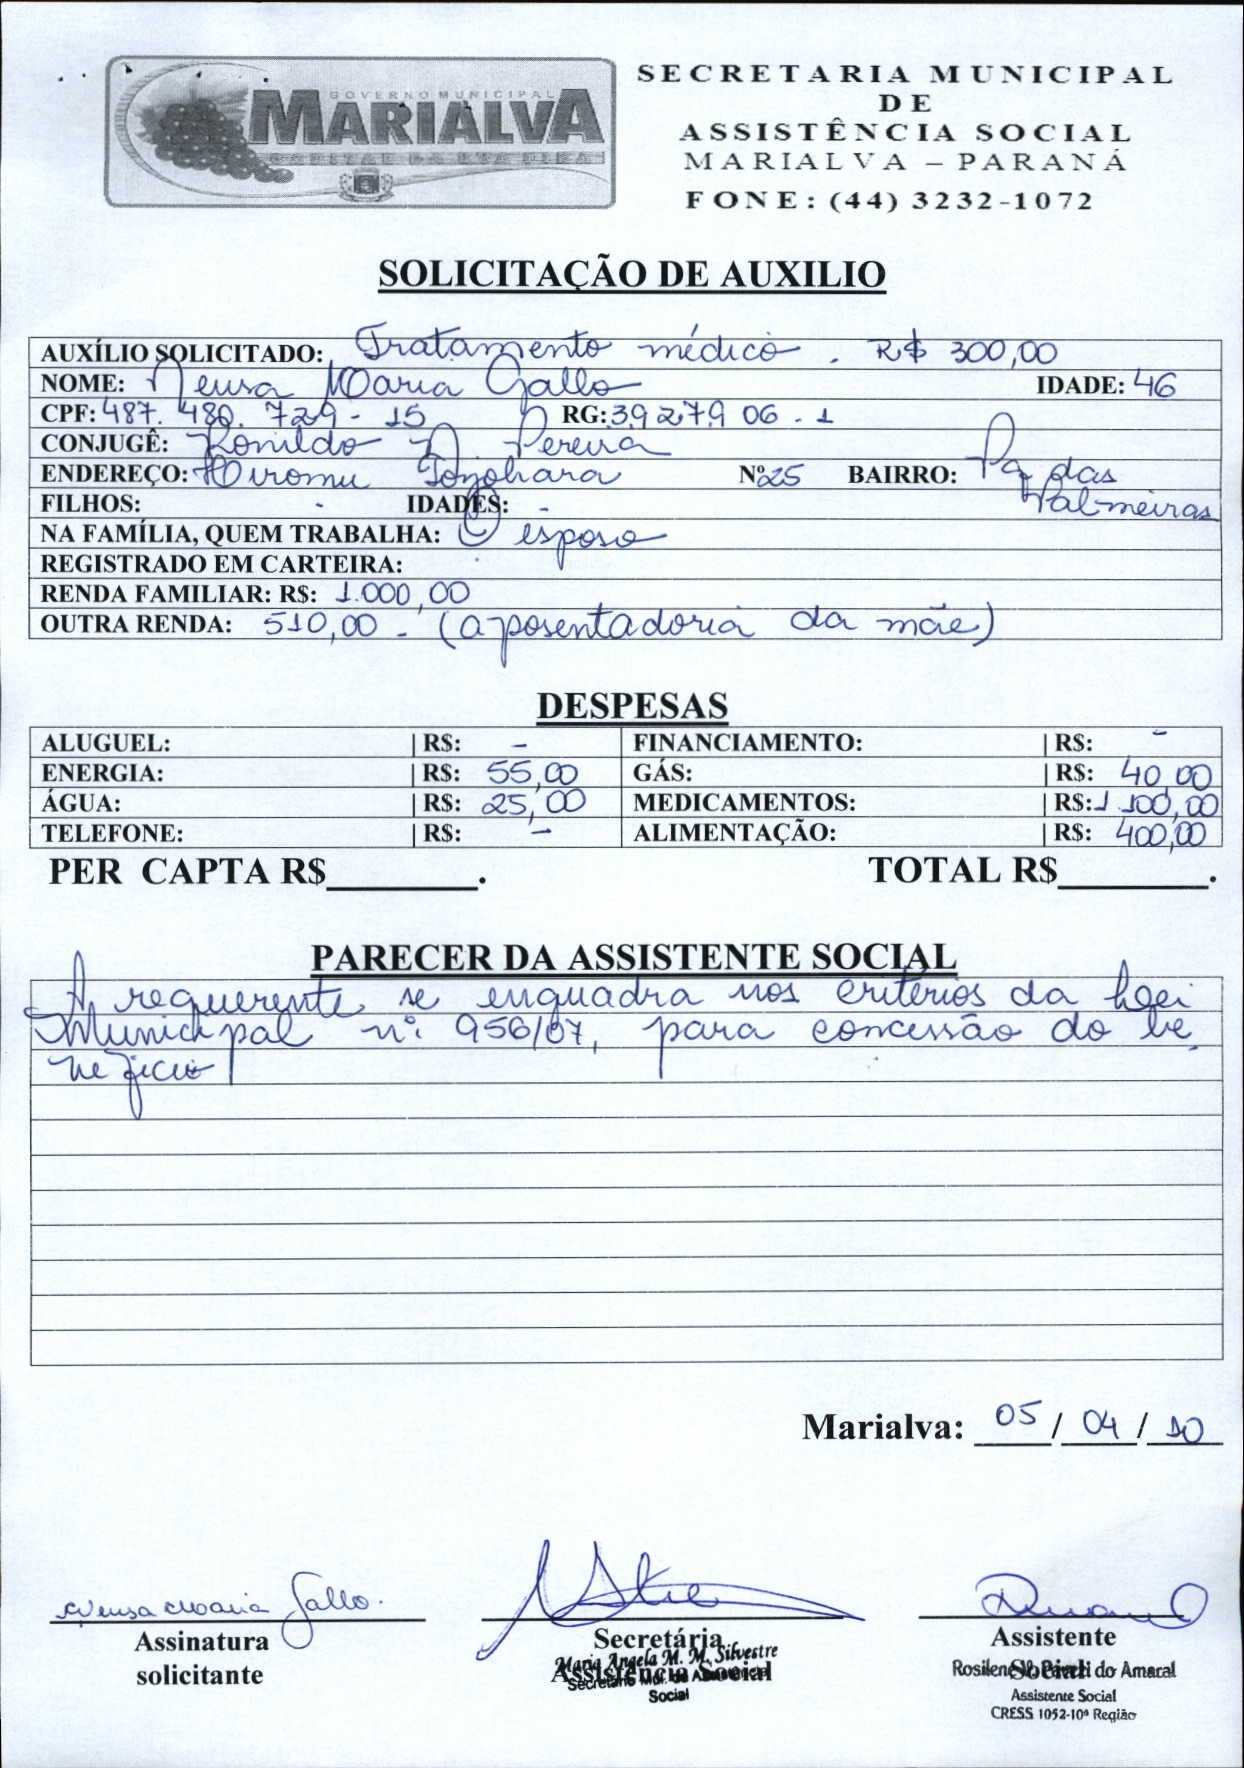 GOVERNO MUNICIPAL
MARIALVA
CAPITAL DA UVA FINA
SECRETARIA MUNICIPAL
DE
ASSISTÊNCIA SOCIAL
MARIALVA – PARANÁ
FONE: (44) 3232-1072
SOLICITAÇÃO DE AUXILIO
AUXÍLIO SOLICITADO: Tratamento médico. R$ 300,00
NOME: Neusa Maria Gallo IDADE: 46
CPF: 487.480.729-15 RG: 3927906-1
CONJUGÊ: Ronildo N Pereira
ENDEREÇO: Hiromu Nº 25 BAIRRO: Pq das
Palmeiras
FILHOS: - IDADES: -
NA FAMÍLIA, QUEM TRABALHA: O esposo
REGISTRADO EM CARTEIRA:
RENDA FAMILIAR: R$: 1.000,00
OUTRA RENDA: 510,00 - (aposentadoria da mãe)
DESPESAS
ALUGUEL: | R$: - FINANCIAMENTO: | R$: -
ENERGIA: | R$: 55,00 GÁS: | R$: 40,00
ÁGUA: | R$: 25,00 MEDICAMENTOS: | R$: 1.100,00
TELEFONE: | R$: - ALIMENTAÇÃO: | R$: 400,00
PER CAPTA R$________. TOTAL R$________.
PARECER DA ASSISTENTE SOCIAL
A requerente se enquadra nos critérios da Lei
Municipal nº 956/07, para concessão do be
nefício
Marialva: 05 / 04 / 10
Neusa Maria Gallo.
Assinatura
solicitante
Secretária
Assistência Social
Maria Angela M. M. Silvestre
Social
Assistente
Social
Rosilene do Amaral
Assistente Social
CRESS 1052-10ª Região